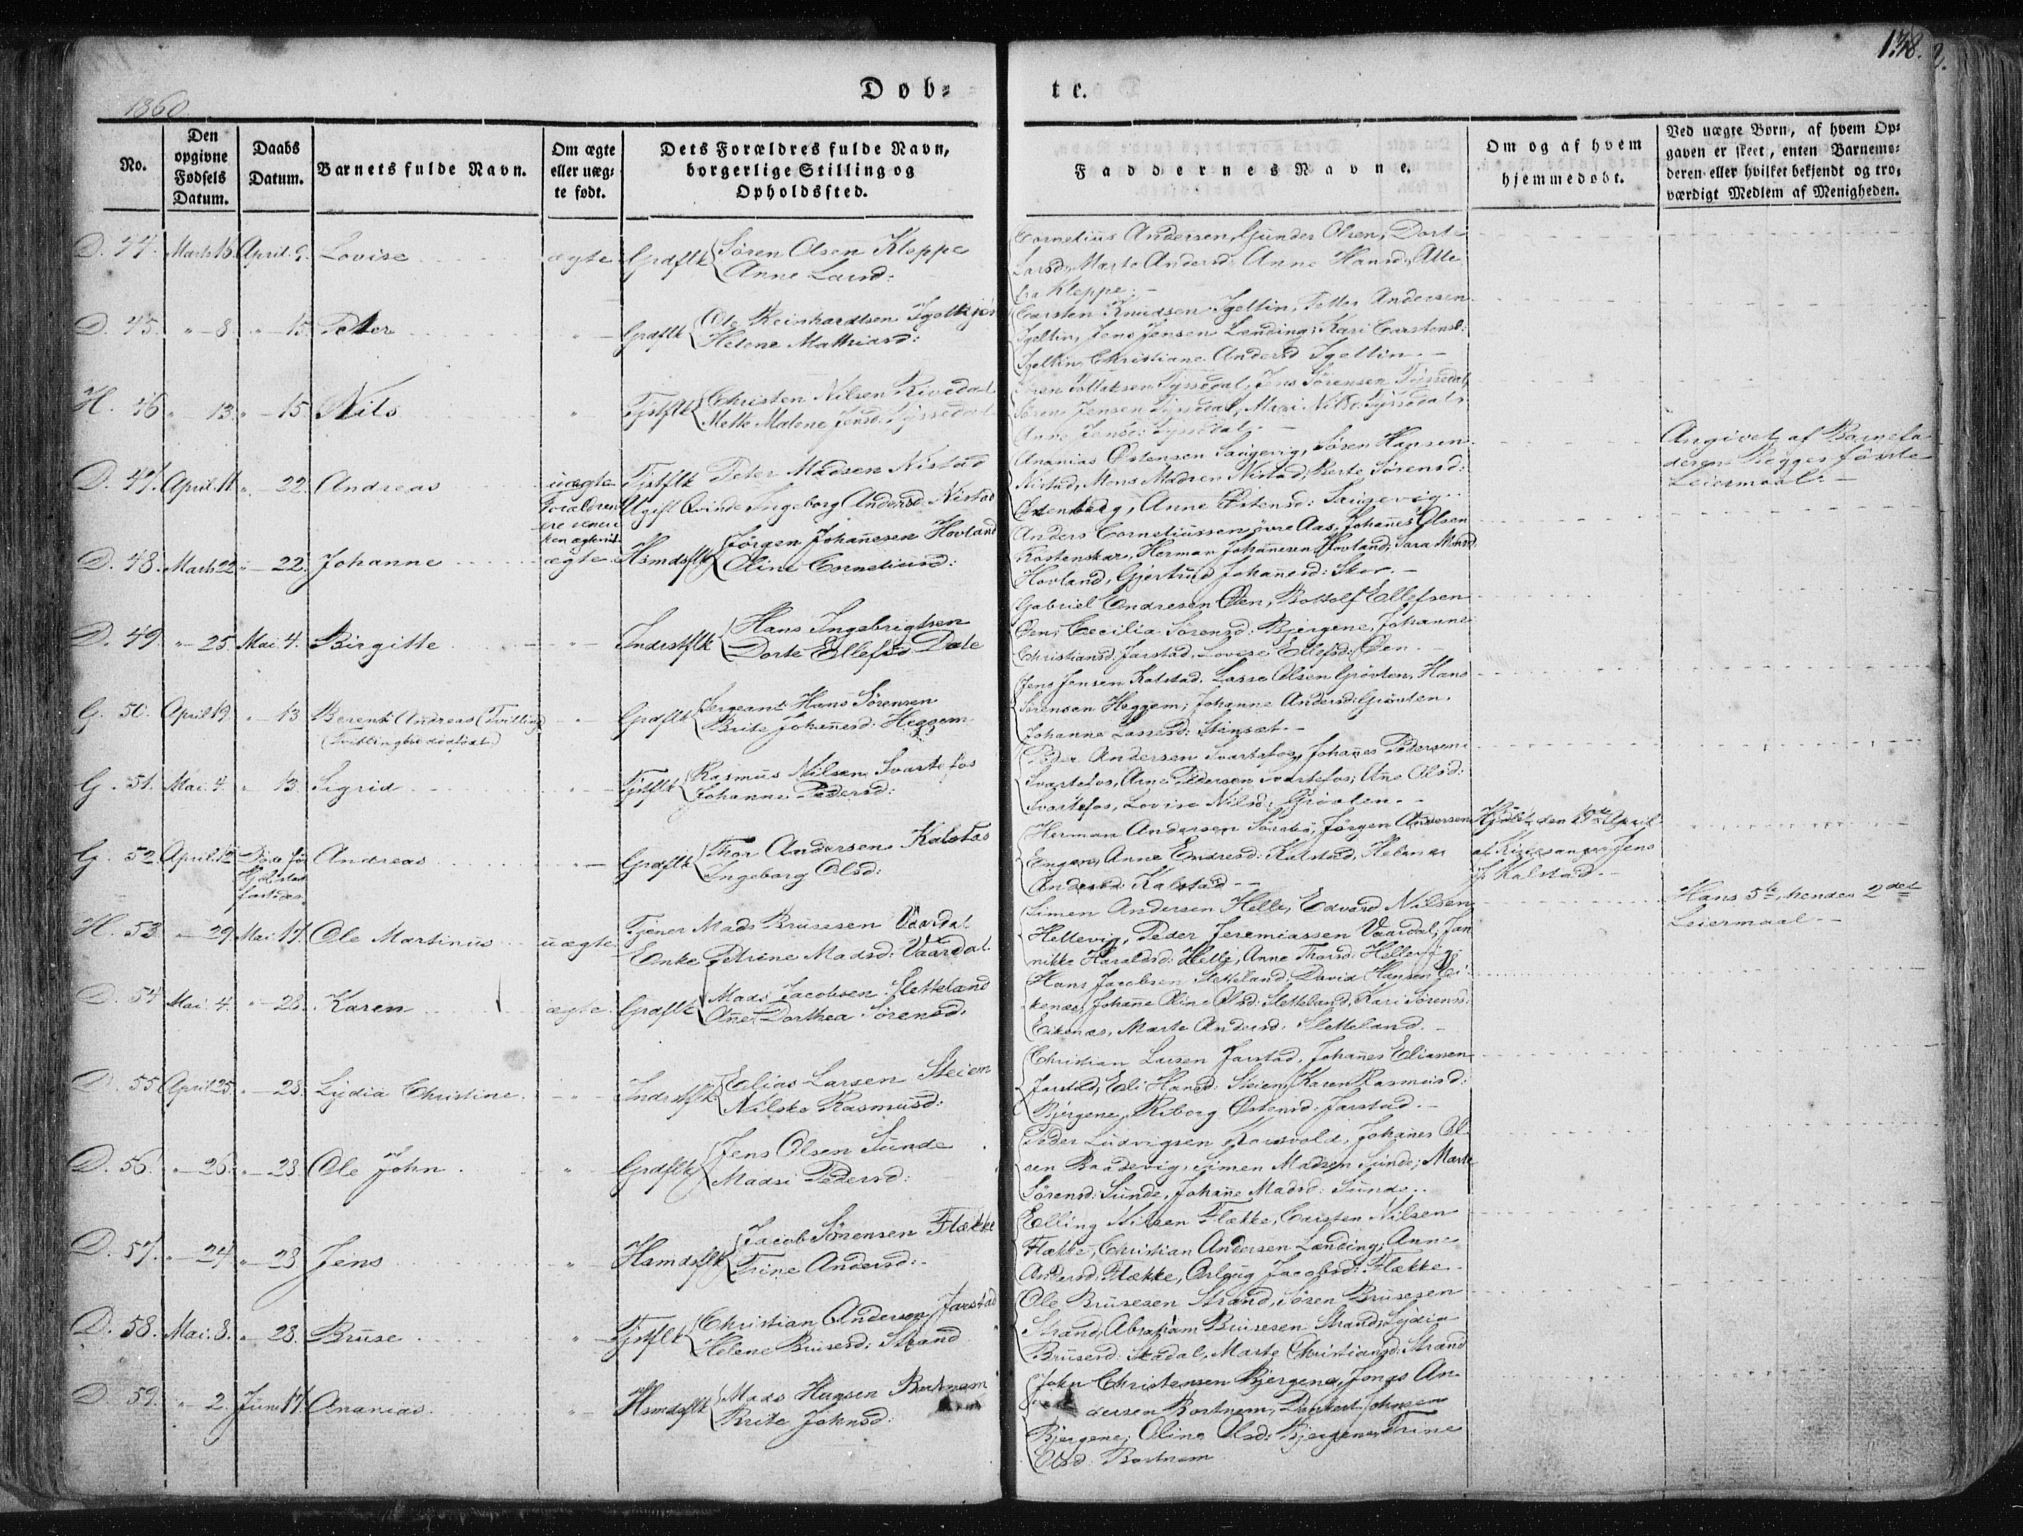 1860
Døb-
te.
138.
No.
Den opgivne Fødsels Datum.
Daabs Datum.
Barnets fulde Navn.
Om ægte eller uægte født.
Dets Forældres fulde Navn, borgerlige Stilling og Opholdssted.
Faddernes Navne.
Om og af hvem hjemmedøbt.
Ved uægte Børn, af hvem Opgaven er skeet, enten Barnemoderen eller hvilket bekjendt og troværdigt Medlem af Menigheden.
D. 44. Marts 16. April 9. Lovise ægte Grdflk Søren Olsen Kleppe
Anne Larsd:
Cornelius Andersen, Gunder Olsen, Dorte
Larsd: Marte Andersd: Anne Hansd: Alle
fra Kleppe. -
D. 45. " - 8 " - 15. Peter " Grdflk Ole Reinhardtsen
Helene Mathiasd:
Carsten Knudsen Igeltin, Petter Andersen
Igeltin, Jens Jensen Lending; Kari Carstensd:
Igeltin, Christiane Andersd Igeltin. -
H. 46 " - 13. " - 15. Nils " Tjstflk Christen Nilsen Rivedal
Mette Malene Jensd: Tyssedal
Tyssedal, Jens Sørensen Tyssedal,
Søren Jensen Tyssedal, Mari Nilsd: Tyssedal
Anne Jensd: Tyssedal. -
D. 47. April 11 " - 22. Andreas uægte Tjstflk Peter Madsen Nistad
Forældrene senere
Ugift Qvinde Ingeborg Andersd: Nistad
Ananias Østensen Saugevig, Søren Hansen
Nistad, Mons Madsen Nistad, Berte Sørensd:
Anne Østensd: Saugevig.
Angivet af Barnefa-
deren Begges første
Leiermaal. -
D. 48. Marts 22 " - 22. Johanne ægte Hsmdsflk Jørgen Johanesen Hovland
Oline Corneliusd:
Anders Corneliussen øvre Aas, Johanes Olsen
Herman Johanesen Hovland, Sara
Hovland, Gjertrud Johanesd: Skor. -
D. 49. " - 25. Mai. 4. Birgitte " Inderstflk Hans Ingebrigtsen
Dorte Ellefsd Dale
Gabriel Andresen Øen, Bottolf Ellefsen
Øen; Cecilia Sørensd: Bjergene, Johanne
Christiansd: Jarstad, Lovise Ellefsd: Øen. -
G. 50. April 19 " - 13 Berent Andreas (Tvilling)
(Tvillingbro dødfødt)
" Grdflk Sergeant Hans Sørensen
Brite Johanesd: Heggem
Jens Jensen Kalstad, Lasse Olsen Grøvlen, Hans
Sørensen Heggem; Johanne Andersd: Grøvlen,
Johanne Lassesd: Stensæt. -
G. 51. Mai. 4. " - 13. Sigrid " Rasmus Nilsen Svartefos
Johanne Pedersd:
Peder Andersen Svartefos, Johanes Pedersen
Svartefos, Arne Pedersen Svartefos, Ane Olsd:
Svartefos, Lovise Nilsd: Grøvlen. -
G. 52 April 12 Andreas " Grdflk Thor Andersen Kalstad
Ingeborg Olsd:
Herman Andersen Sørebø, Jørgen Andersen
Anne Endresd: Kalstad, Helene
Andersd: Kalstad
Hjdbt. den April
af Kirkesanger Jens
Kalstad. -
H. 53 " - 29 Mai. 17. Ole Martinus uægte Tjener Mads Brusesen Vaardal
Enke Petrine Madsd: Vaardal.
Simen Andersen Helle, Edvard Nilsen
Hellevig, Peder Jeremiassen Vaardal, Jan-
nikke Haraldsd: Helle, Anne Thorsd: Hellevig.
Hans 5te, hendes 2det
Leiermaal. -
D. 54 Mai. 4. " - 28. Karen ægte. Grdflk Mads Jacobsen Sletteland
Ane Dorthea Sørensd.
Hans Jacobsen Sletteland, David Hansen Ei-
kenæs, Johane Oline Olsd: Sletteland, Kari Sørensd:
Eikenæs, Marte Andersd: Sletteland. -
D. 55 April 25. " - 28. Lydia Christine. " Inderstflk Elias Larsen Steien
Nilske Rasmusd:
Christian Larsen Jarstad, Johanes Eliassen
Jarstad, Eli Hansd: Steien, Karen Rasmusd:
Bjergene, Riborg Østensd: Jarstad. -
D. 56. " - 26. " - 28 Ole John " Grdflk Jens Olsen Sunde
Madsi Pedersd:
Peder Ludvigsen Johanes Ol-
sen Baadevig, Simen Madsen Sunde; Marte
Sørensd: Sunde, Johane Madsd: Sunde.
D. 57. " - 24. " - 28 Jens " Hsmdsflk Jacob Sørensen Flække
Trine Andersd: -
Elling Nilsen Flække, Carsten Nilsen
Flække, Christian Andersen Lending; Anne
Andersd: Flække, Jacobsd: Flække
D. 58. Mai. 8. " - 28. Bruse " Tjstflk Christian Andersen Jarstad
Helene Brusesd: Strand
Ole Brusesen Strand, Søren Brusesen
Strand, Abraham Brusesen Strand; Lydia
Brusesd: Stadal, Marte Christiansd: Strand
D. 59. " - 2. Juni 17. Ananias. " Hsmdsflk Mads Hansen Bortnem
Brite Johnsd:
John Christensen Bjergene, Jonas An-
dersen Bortnem, Johnsen
Bjergene; Oline Olsd: Bjergene, Trine
Olsd. Bortnem